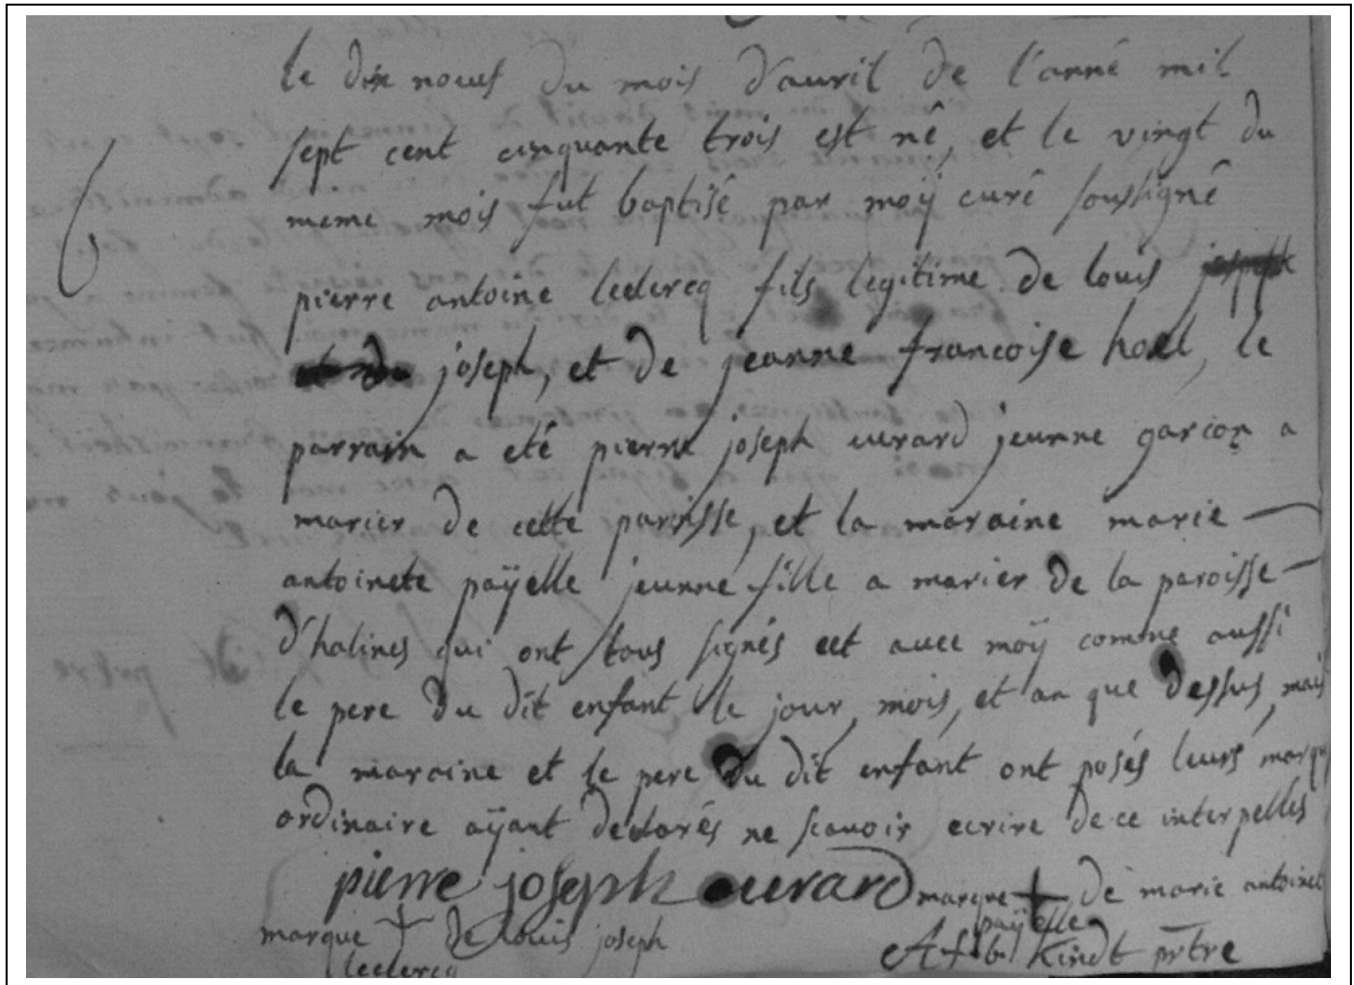 le dix noeuf du mois d'auril de l'anné mil
sept cent cinquante trois est né, et le vingt du
meme mois fut baptisé par moÿ curé soussigné
pierre antoine leclercq fils legitime de louis
joseph, et de jeanne francoise hoel, le
parrain a eté pierre joseph uvrard jeunne garcon a
marier de cette paroisse, et la maraine marie
antoinete paÿelle jeunne fille a marier de la paroisse
d'halines qui ont tous signés cet avec moÿ comme aussi
le pere du dit enfant le jour, mois, et an que dessus, mais
la maraine et le pere du dit enfant ont posés leurs marqu
ordinaire aÿant declarés ne scavoir ecrire de ce interpelles
pierre joseph euvrard marque + de marie antoinet
paÿelle
marque + de louis joseph
leclercq
Kindt prtre